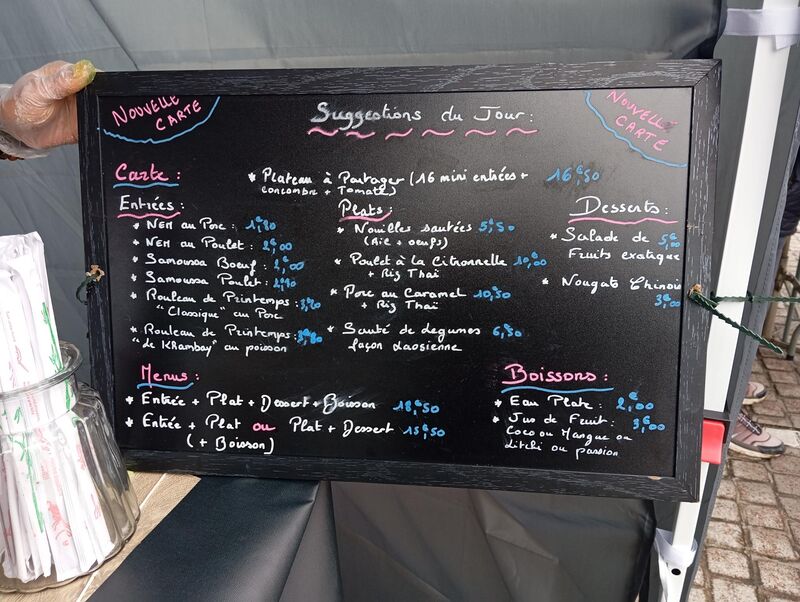 NOUVELLE
CARTE
Suggestions du Jour:
NOUVELLE
CARTE
Carte:
* Plateau à Partager (16 mini entrées + 16€,50
concombre + Tomate)
Entrées:
* NEM au Porc: 1€,80
* NEM au Poulet: 2€,00
* Samoussa Boeuf: 2€,00
* Samoussa Poulet:
* Rouleau de Printemps:
"Classique" au Porc
* Rouleau de Printemps:
"de Khambay" au poisson
Plats:
* Nouilles sautées 5€,50
(Ail + oeufs)
* Poulet à la Citronnelle 10€,00
+ Riz Thaï
* Porc au Caramel 10€,50
+ Riz Thaï
* Sauté de légumes 6€,50
façon Laosienne
Desserts:
* Salade de 5€,00
Fruits exotique
* Nougats Chinois
3€,00
Menus:
* Entrée + Plat + Dessert + Boisson 18€,50
* Entrée + Plat ou Plat + Dessert 15€,50
(+ Boisson)
Boissons:
* Eau Plate: 2€,00
* Jus de Fruit: 3€,00
Coco ou Mangue ou
Litchi ou passion